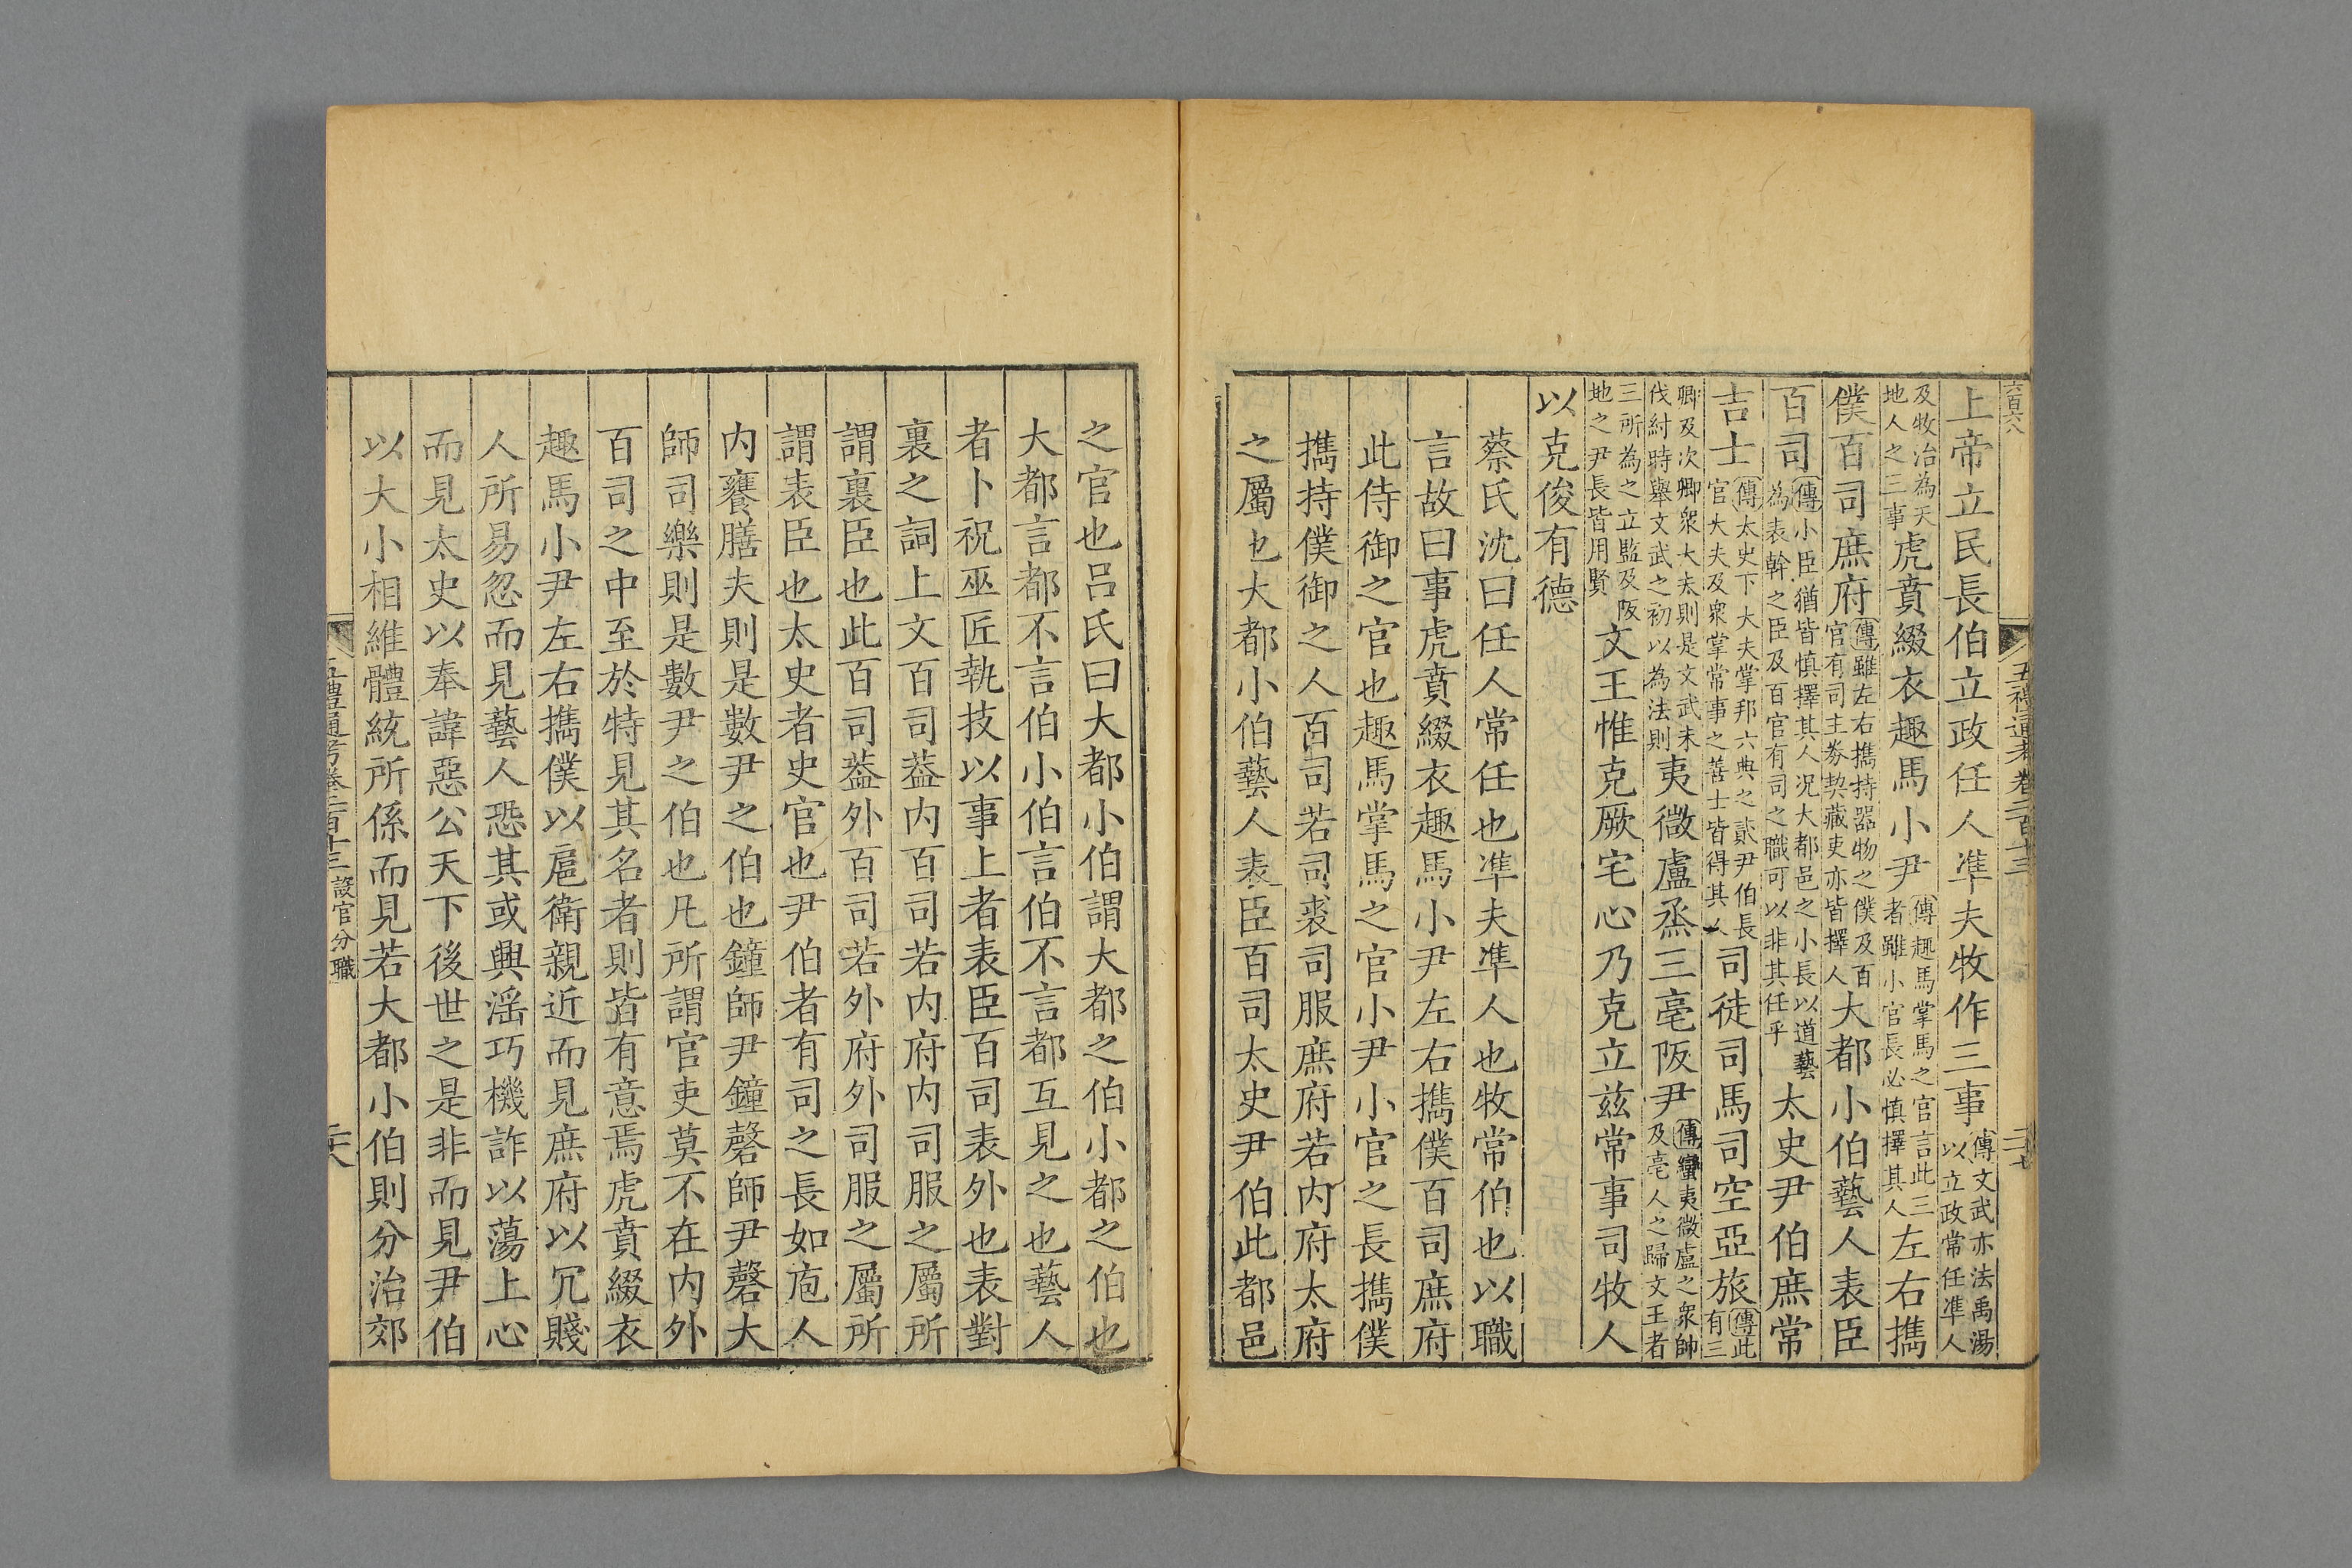 上帝立民長伯立政任人準夫牧作三事傳文武亦法禹湯以立政常任準人
及牧治為天地人之三事虎賁綴衣趣馬小尹傳趣馬掌馬之官言此三者雖小官長必慎擇其人左右攜
僕百司庶府傳雖左右攜持器物之僕及百官有司主券契藏吏亦皆擇人大都小伯藝人表臣
百司傳小臣猶皆慎擇其人況大都邑之小長以道藝為表幹之臣及百官有司之職可以非其任乎太史尹伯庶常
吉士傳太史下大夫掌邦六典之貳尹伯長官大夫及衆掌常事之善士皆得其人司徒司馬司空亞旅傳此有三
卿及次卿衆大夫則是文武未伐紂時舉文武之初以為法則夷微盧烝三亳阪尹傳蠻夷微盧之衆帥及亳人之歸文王者
三所為之立監及阪地之尹長皆用賢文王惟克厥宅心乃克立茲常事司牧人
以克俊有德
蔡氏沈曰任人常任也準夫準人也牧常伯也以職
言故曰事虎賁綴衣趣馬小尹左右攜僕百司庶府
此侍御之官也趣馬掌馬之官小尹小官之長攜僕
攜持僕御之人百司若司裘司服庶府若内府太府
之屬也大都小伯藝人表臣百司太史尹伯此都邑
之官也呂氏曰大都小伯謂大都之伯小都之伯也
大都言都不言伯小伯言伯不言都互見之也藝人
者卜祝巫匠執技以事上者表臣百司表外也表對
裏之詞上文百司葢内百司若内府内司服之屬所
謂裏臣也此百司葢外百司若外府外司服之屬所
謂表臣也太史者史官也尹伯者有司之長如庖人
内饔膳夫則是數尹之伯也鐘師尹鐘磬師尹磬大
師司樂則是數尹之伯也凡所謂官吏莫不在内外
百司之中至於特見其名者則皆有意焉虎賁綴衣
趣馬小尹左右攜僕以扈衛親近而見庶府以冗賤
人所易忽而見藝人恐其或興滛巧機詐以蕩上心
而見太史以奉諱惡公天下後世之是非而見尹伯
以大小相維體統所係而見若大都小伯則分治郊
五禮通考卷二百十三 設官分職